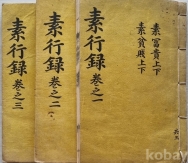 素富貴上下
素貧賤上下
素行録 卷之一
素行録 卷之二
素行録 卷之三
kobay